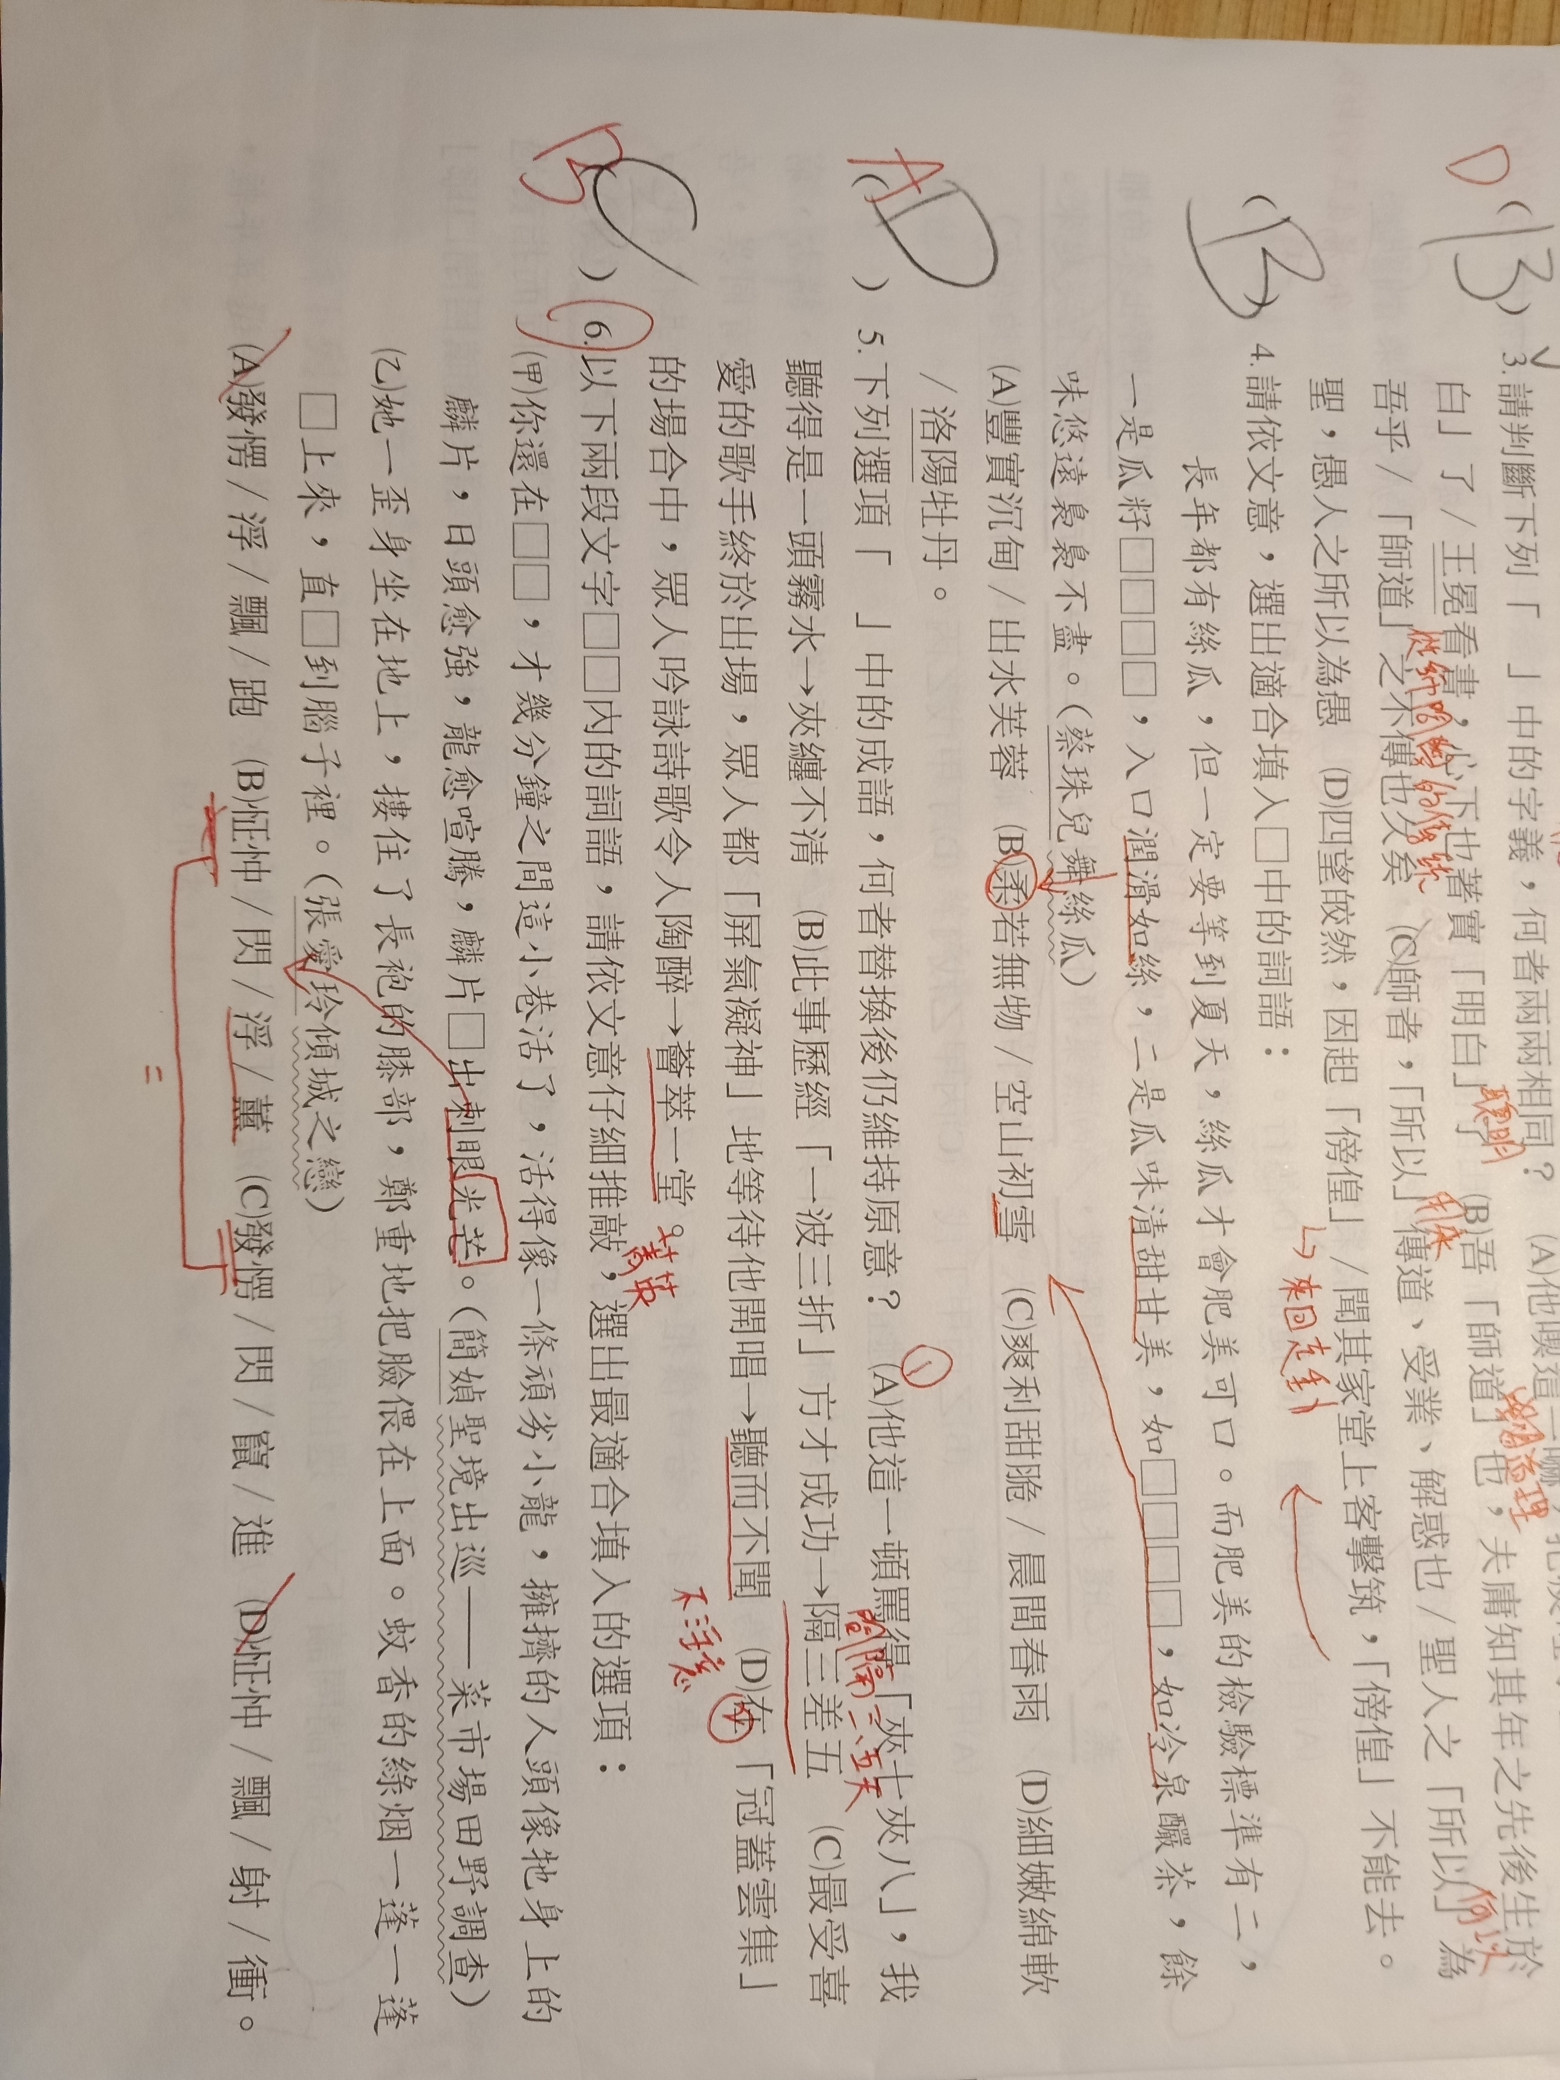 D (B) 3.請判斷下列「　」中的字義，何者兩兩相同？　(A)他喫這一嚇，把
白」了／王冕看書，心下也著實「明白」了　(B)吾「師道」也，夫庸知其年之先後生於
聰明
吾乎／「師道」之不傳也久矣　(C)師者，「所以」傳道、受業、解惑也／聖人之「所以」為
從師問學的傳統
用來
何以
聖，愚人之所以為愚　(D)四望皎然，因起「傍偟」／聞其家堂上客擊筑，「傍偟」不能去。
來回走動
(B) 4.請依文意，選出適合填入□中的詞語：
長年都有絲瓜，但一定要等到夏天，絲瓜才會肥美可口。而肥美的檢驗標準有二，
一是瓜籽□□□□，入口潤滑如絲，二是瓜味清甜甘美，如□□□□，如冷泉釅茶，餘
味悠遠裊裊不盡。（蔡珠兒舞絲瓜）
(A)豐實沉甸／出水芙蓉　(B)柔若無物／空山初雪　(C)爽利甜脆／晨間春雨　(D)細嫩綿軟
／洛陽牡丹。
A (D) 5.下列選項「　」中的成語，何者替換後仍維持原意？　(A)他這一頓罵得「夾七夾八」，我
聽得是一頭霧水→夾纏不清　(B)此事歷經「一波三折」方才成功→隔三差五　(C)最受喜
間隔三、五天
愛的歌手終於出場，眾人都「屏氣凝神」地等待他開唱→聽而不聞　(D)在「冠蓋雲集」
的場合中，眾人吟詠詩歌令人陶醉→薈萃一堂。
菁英
B C ) 6.以下兩段文字□□內的詞語，請依文意仔細推敲，選出最適合填入的選項：
(甲)你還在□□，才幾分鐘之間這小巷活了，活得像一條頑劣小龍，擁擠的人頭像牠身上的
麟片，日頭愈強，龍愈喧騰，麟片□出刺眼光芒。（簡媜聖境出巡——菜市場田野調查）
(乙)她一歪身坐在地上，摟住了長袍的膝部，鄭重地把臉偎在上面。蚊香的綠烟一蓬一蓬
□上來，直□到腦子裡。（張愛玲傾城之戀）
(A)發愣／浮／飄／跑　(B)怔忡／閃／浮／薰　(C)發愣／閃／竄／進　(D)怔忡／飄／射／衝。
=